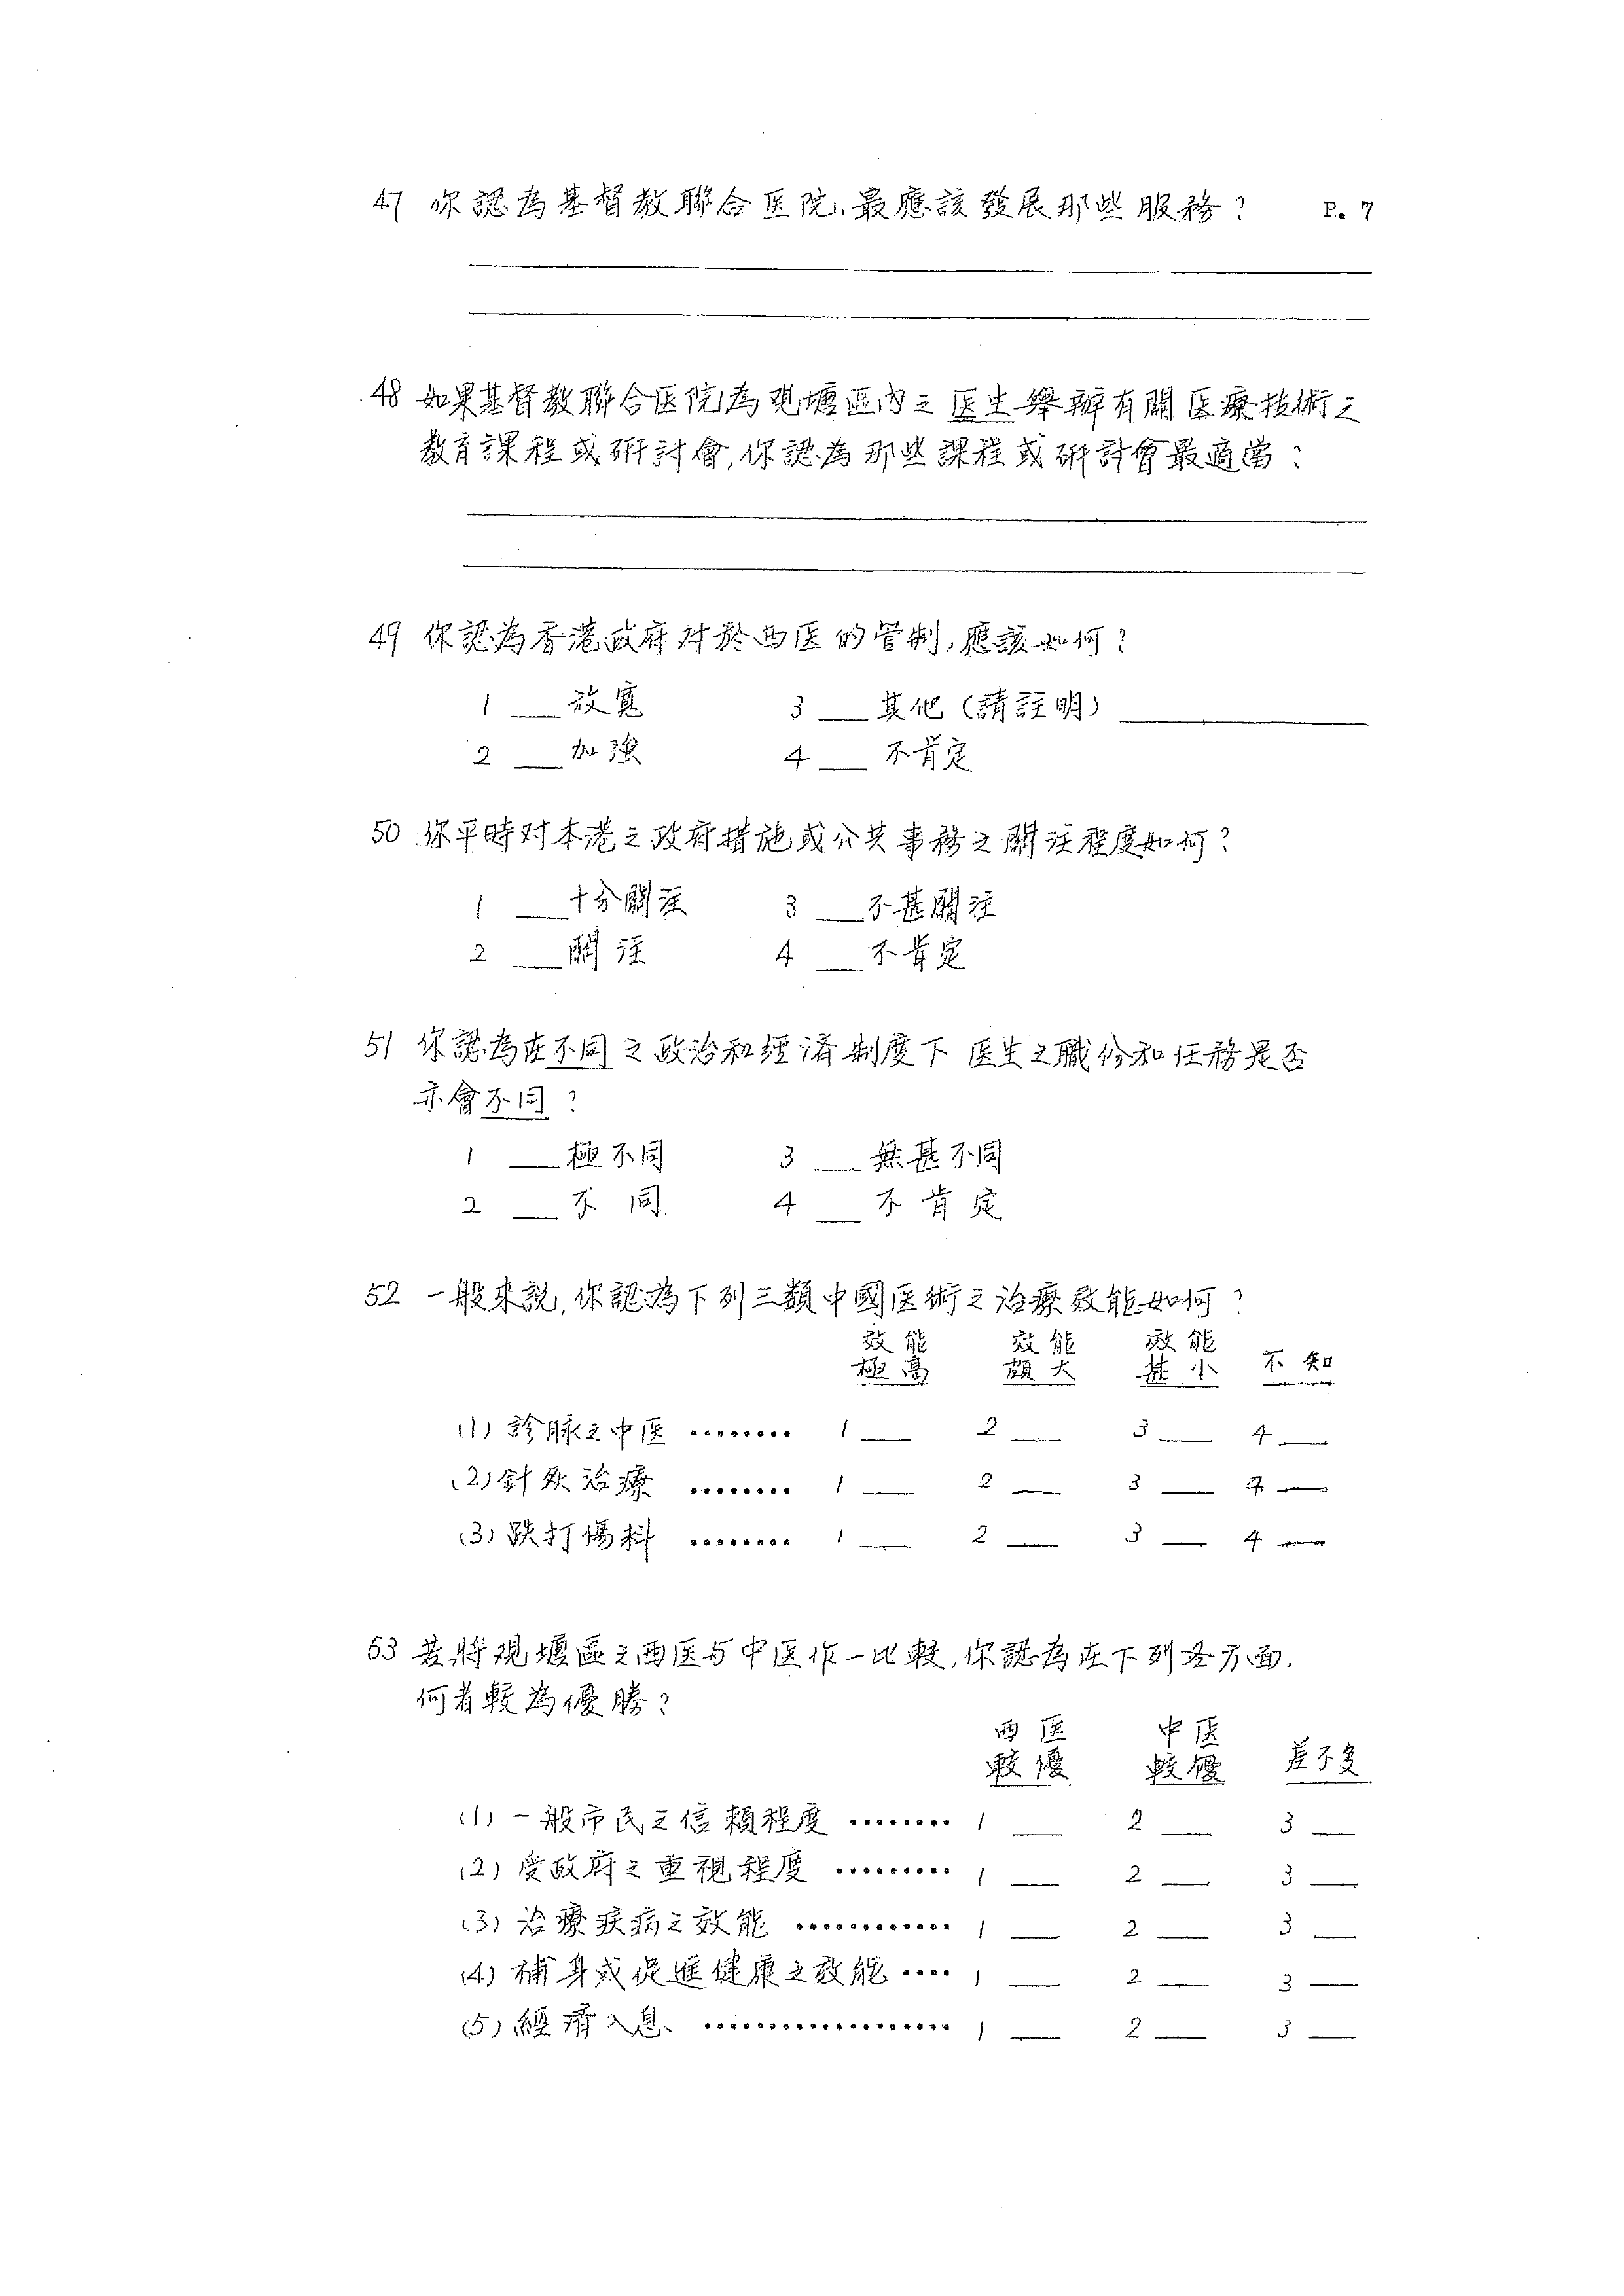 47 你認為基督教聯合医院,最應該發展那些服務? P.7
48 如果基督教聯合医院為观塘區內之医生舉辦有關医療技術之
教育課程或研討會,你認為那些課程或研討會最適當?
49 你認為香港政府对於西医的管制,應該如何?
1 ___放寬 3 ___其他(請註明)___
2 ___加強 4 ___不肯定
50 你平時对本港之政府措施或公共事務之關注程度如何?
1 ___十分關注 3 ___不甚關注
2 ___關注 4 ___不肯定
51 你認為在不同之政治和經濟制度下医生之職份和任務是否
亦會不同?
1 ___極不同 3 ___無甚不同
2 ___不同 4 ___不肯定
52 一般來說,你認為下列三類中國医術之治療效能如何?
效能 效能 效能
極高 頗大 甚小 不知
(1) 診脉之中医 ........ 1 ___ 2 ___ 3 ___ 4 ___
(2) 針灸治療 ........ 1 ___ 2 ___ 3 ___ 4 ___
(3) 跌打傷科 ........ 1 ___ 2 ___ 3 ___ 4 ___
53 若將观塘區之西医与中医作一比較,你認為在下列各方面,
何者較為優勝?
西医 中医
較優 較優 差不多
(1) 一般市民之信賴程度 ........ 1 ___ 2 ___ 3 ___
(2) 受政府之重視程度 ......... 1 ___ 2 ___ 3 ___
(3) 治療疾病之效能 ............ 1 ___ 2 ___ 3 ___
(4) 補身或促進健康之效能 .... 1 ___ 2 ___ 3 ___
(5) 經濟入息 ................... 1 ___ 2 ___ 3 ___